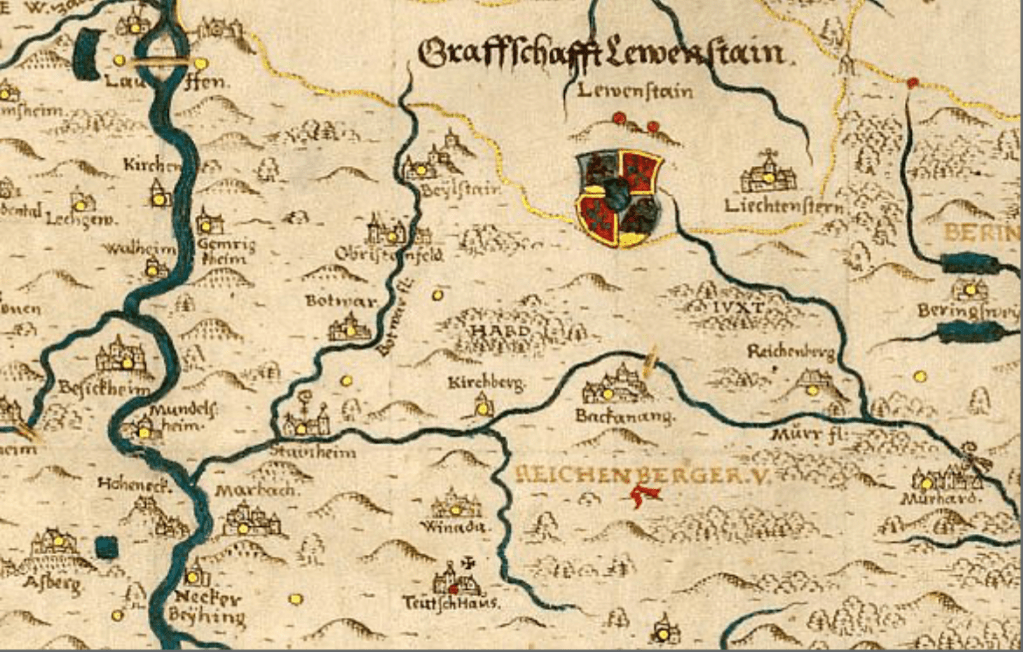 Graffschafft Lewenstain.
Lewenstain
Lauffen.
Kirchen
Lechgew.
Walheim
Gemrig
heim
Beÿlstain
Liechtenstern
BERIN
Botwar
Botwar fl:
HARD
IVXT
Reichenberg
Besickheim
Mundels
heim.
Kirchberg.
Backanang.
Mürr fl:
Stainheim
Hoheneck.
Marbach.
REICHENBERGER. V.
Winada
Murhard.
Asberg
Necker
Beÿhing
TeütschHaus.